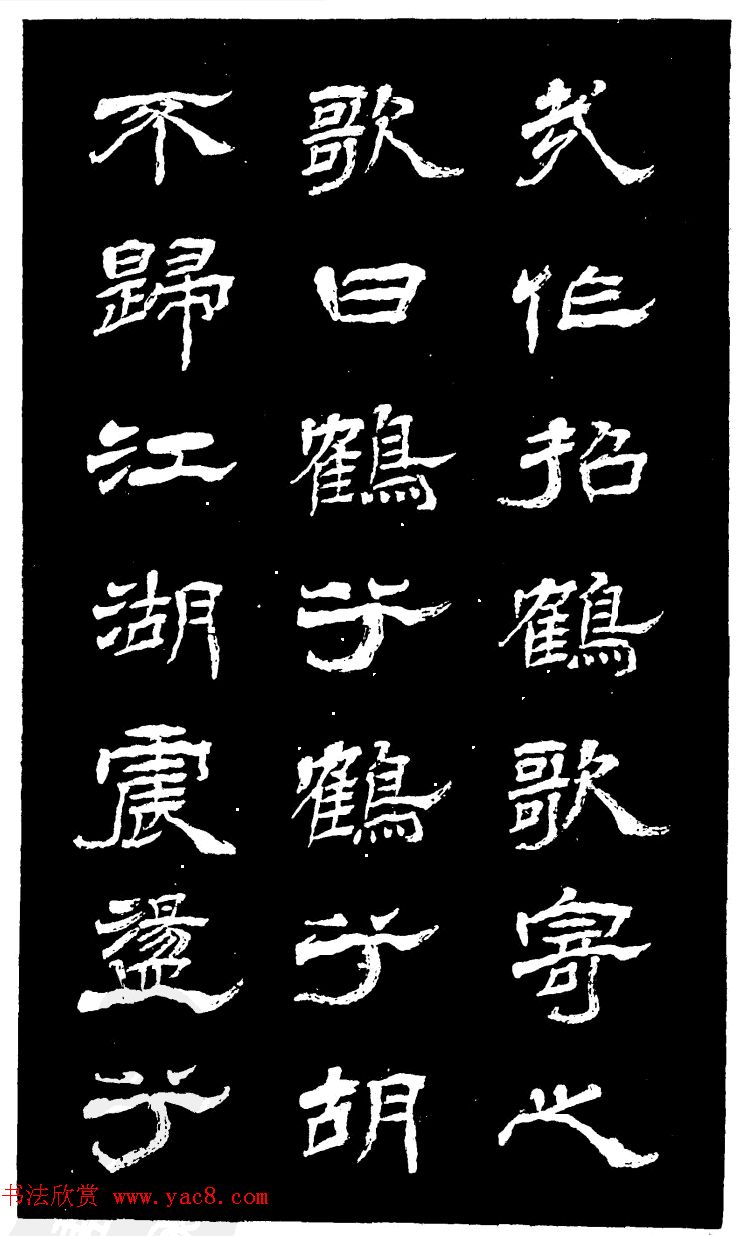 作招鶴歌寄之
歌曰鶴兮鶴兮胡
不歸江湖震盪兮
书法欣赏 www.yac8.com